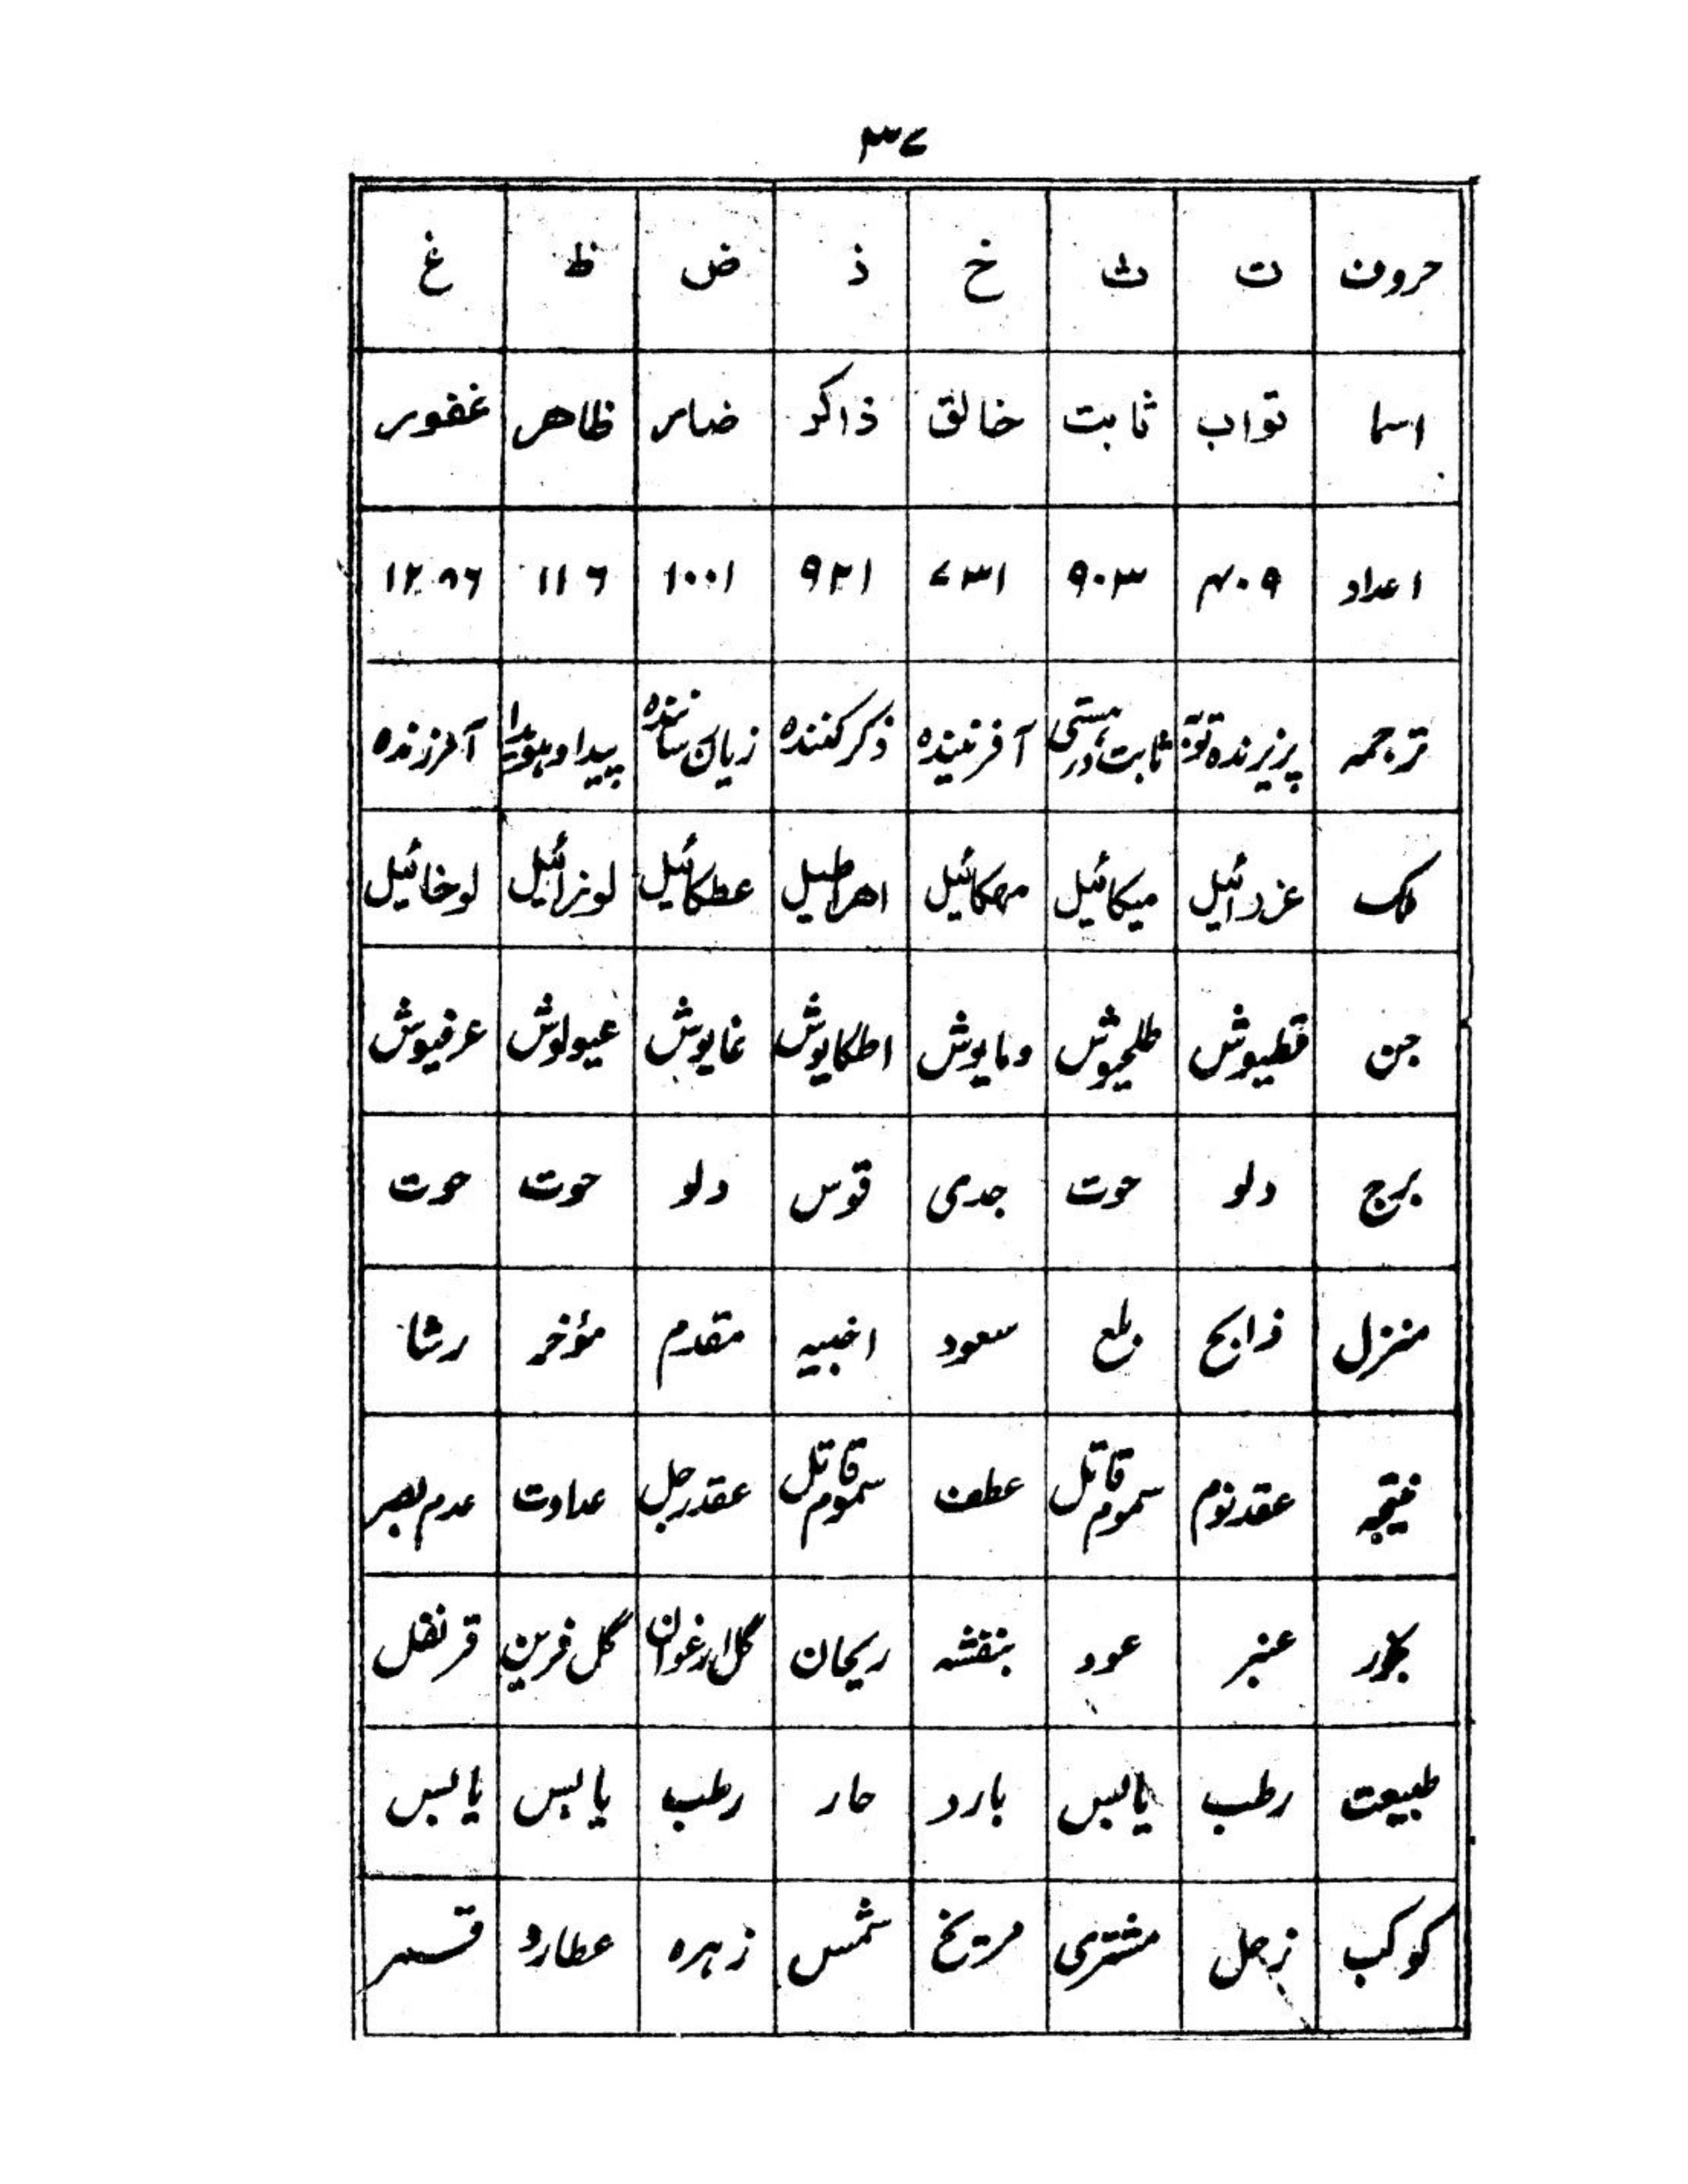 ۳۷
حروف ت ث خ ذ ض ظ غ
اسما تواب ثابت خالق ذاکر ضار ظاهر غفور
اعداد ۴۰۹ ۹۰۳ ۷۳۱ ۹۲۱ ۱۰۰۱ ۱۱۶ ۱۲۸۶
ترجمہ پزیرندہ توبہ ثابت در ہستی آفرنیندہ ذکر کنندہ زیان رسانندہ پیدا و ہویدا آمرزندہ
ملک عزرائیل میکائیل مہکائیل اهراطیل عطکائیل لوزائیل لوخائیل
جن قطیوش طلحیوش ومایوش اطکایوش غایوش عیولوش عرفیوش
برج دلو حوت جدی قوس دلو حوت حوت
منزل ذابح بلع سعود اخبیہ مقدم مؤخر رشا
نتیجہ عقد نوم سموم قاتل عطف سموم قاتل عقد رجل عداوت عدم بصر
بخور عنبر عود بنفشہ ریحان گل ارغوان گل فرین قرنفل
طبیعت رطب یابس بارد حار رطب یابس یابس
کوکب زحل مشتری مریخ شمس زہرہ عطارد قمر